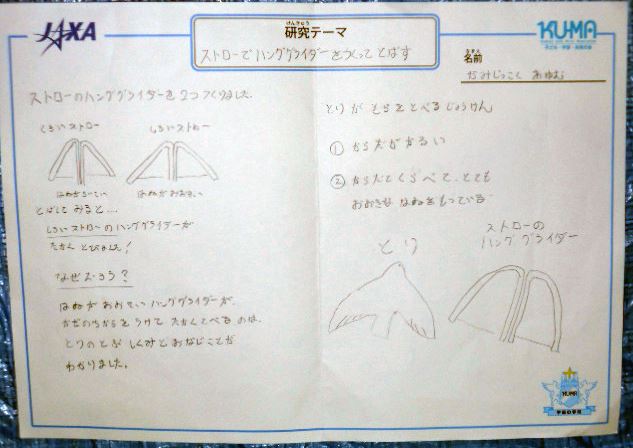 JAXA
けんきゅう
研究テーマ
ストローでハンググライダーをつくって とばす
KUMA
なまえ
名前
ストローのハンググライダーを2つつくりました。
くろいストロー
しろいストロー
はねがちいさい
はねがおおきい
とばしてみると…
しろいストローのハンググライダーが
たかくとびました!
なぜだろう?
はねがおおきいハンググライダーが、
かぜのちからをうけてたかくとべるのは、
とりのとぶ しくみとおなじことが
わかりました。
とりが そらをとべるじょうけん
① からだがかるい
② からだとくらべて、とても
おおきな はねをもっている
とり
ストローの
ハンググライダー
KUMA
宇宙の学校